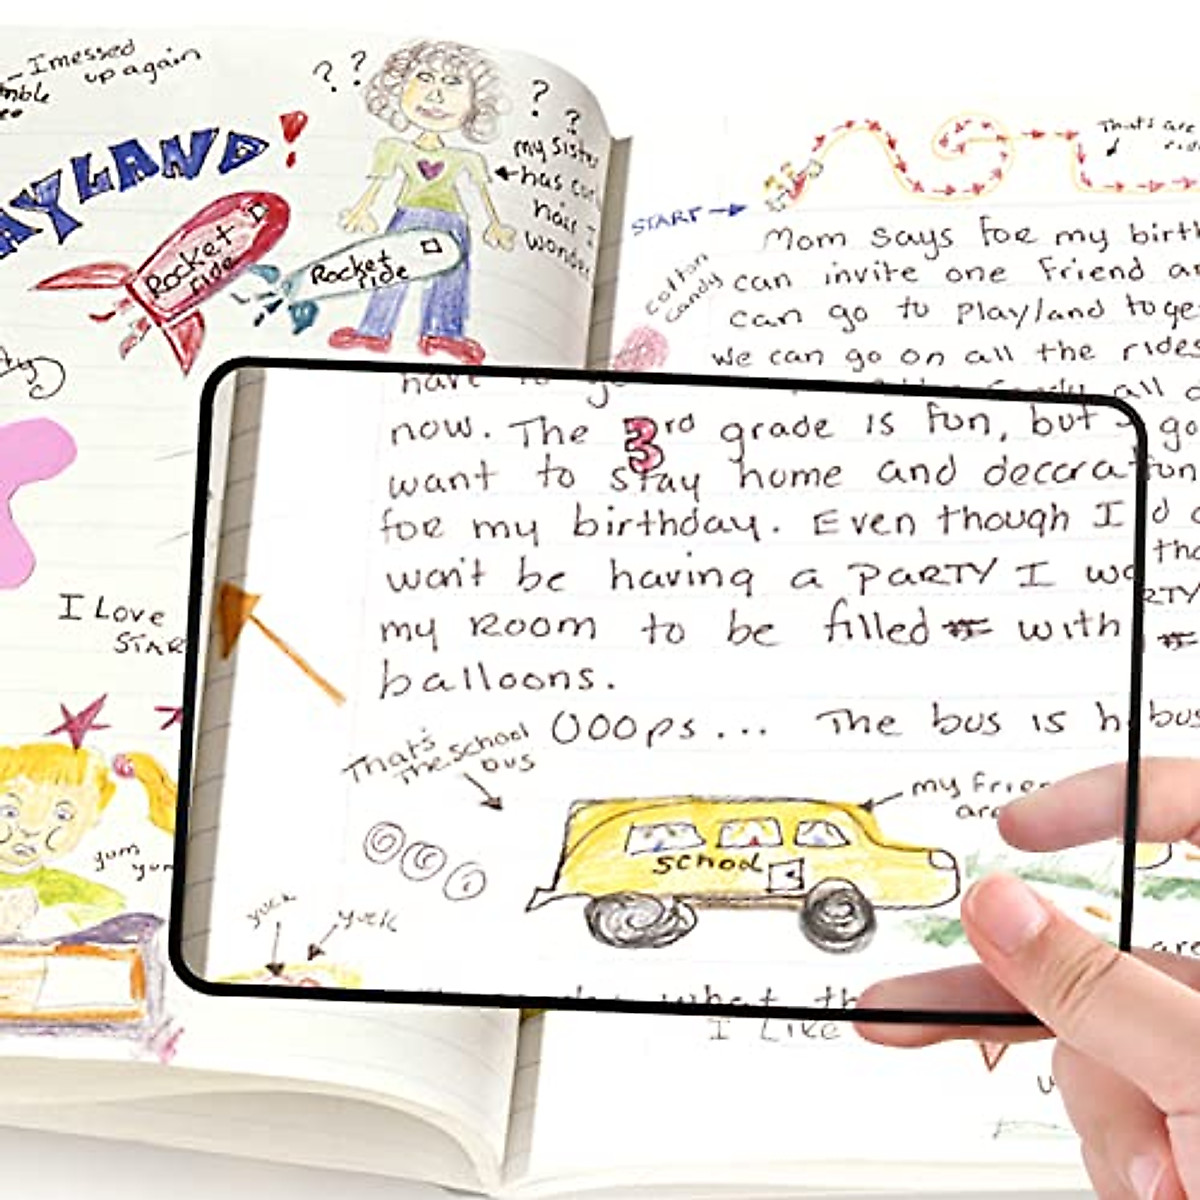 I messed
up again
AYLAND!
? ?
? ?
my sister
has
hair
wonder
Rocket
ride
Rocket
ride
I LOVE
STAR
yum
yum
That's are
START
cotton
candy
Mom says foe my birth
can invite one friend
can go to Playland toge
we can go on all the rides
all
have to go
now. The 3rd grade is fun, but
want to stay home and
for my birthday. Even though I
won't be having a PARTY I
my Room to be filled with
balloons.
OOOps... The bus is
bus
That's
the school
bus
my
are
school
yuck
yuck
what
I Like